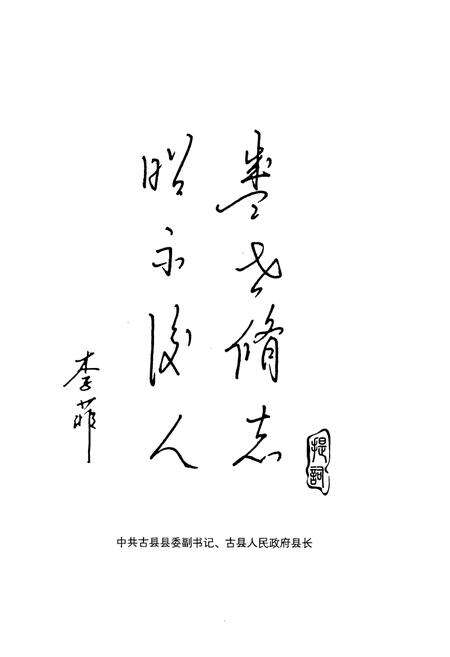 提詞
盛世修志
昭示後人
李菲
中共古县县委副书记、古县人民政府县长